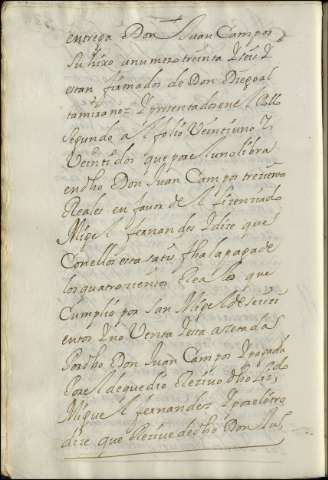 entrega Don Juan Campos
Su hixo a numero treinta y seis y
estan firmados de Don Diego al
tamirano = y presentados en el Pli
segundo a el folio Veintiuno y
Veinti dos que por el uno libra
en dho Don Juan Campos trecientos
Reales en favor de el licenciado
Migel fernandes y dize que
Con ellos esta satisfha la paga de
los quatrocientos Reales que
Cumplio por San Migel de seicien
entos y no Venta y esta acetada
Por dho Don Juan Campos y pagada
Por el de que dio Recivo dho Ldo
Miguel fernandez y por el otro
dize que Recive de dho Don Juo